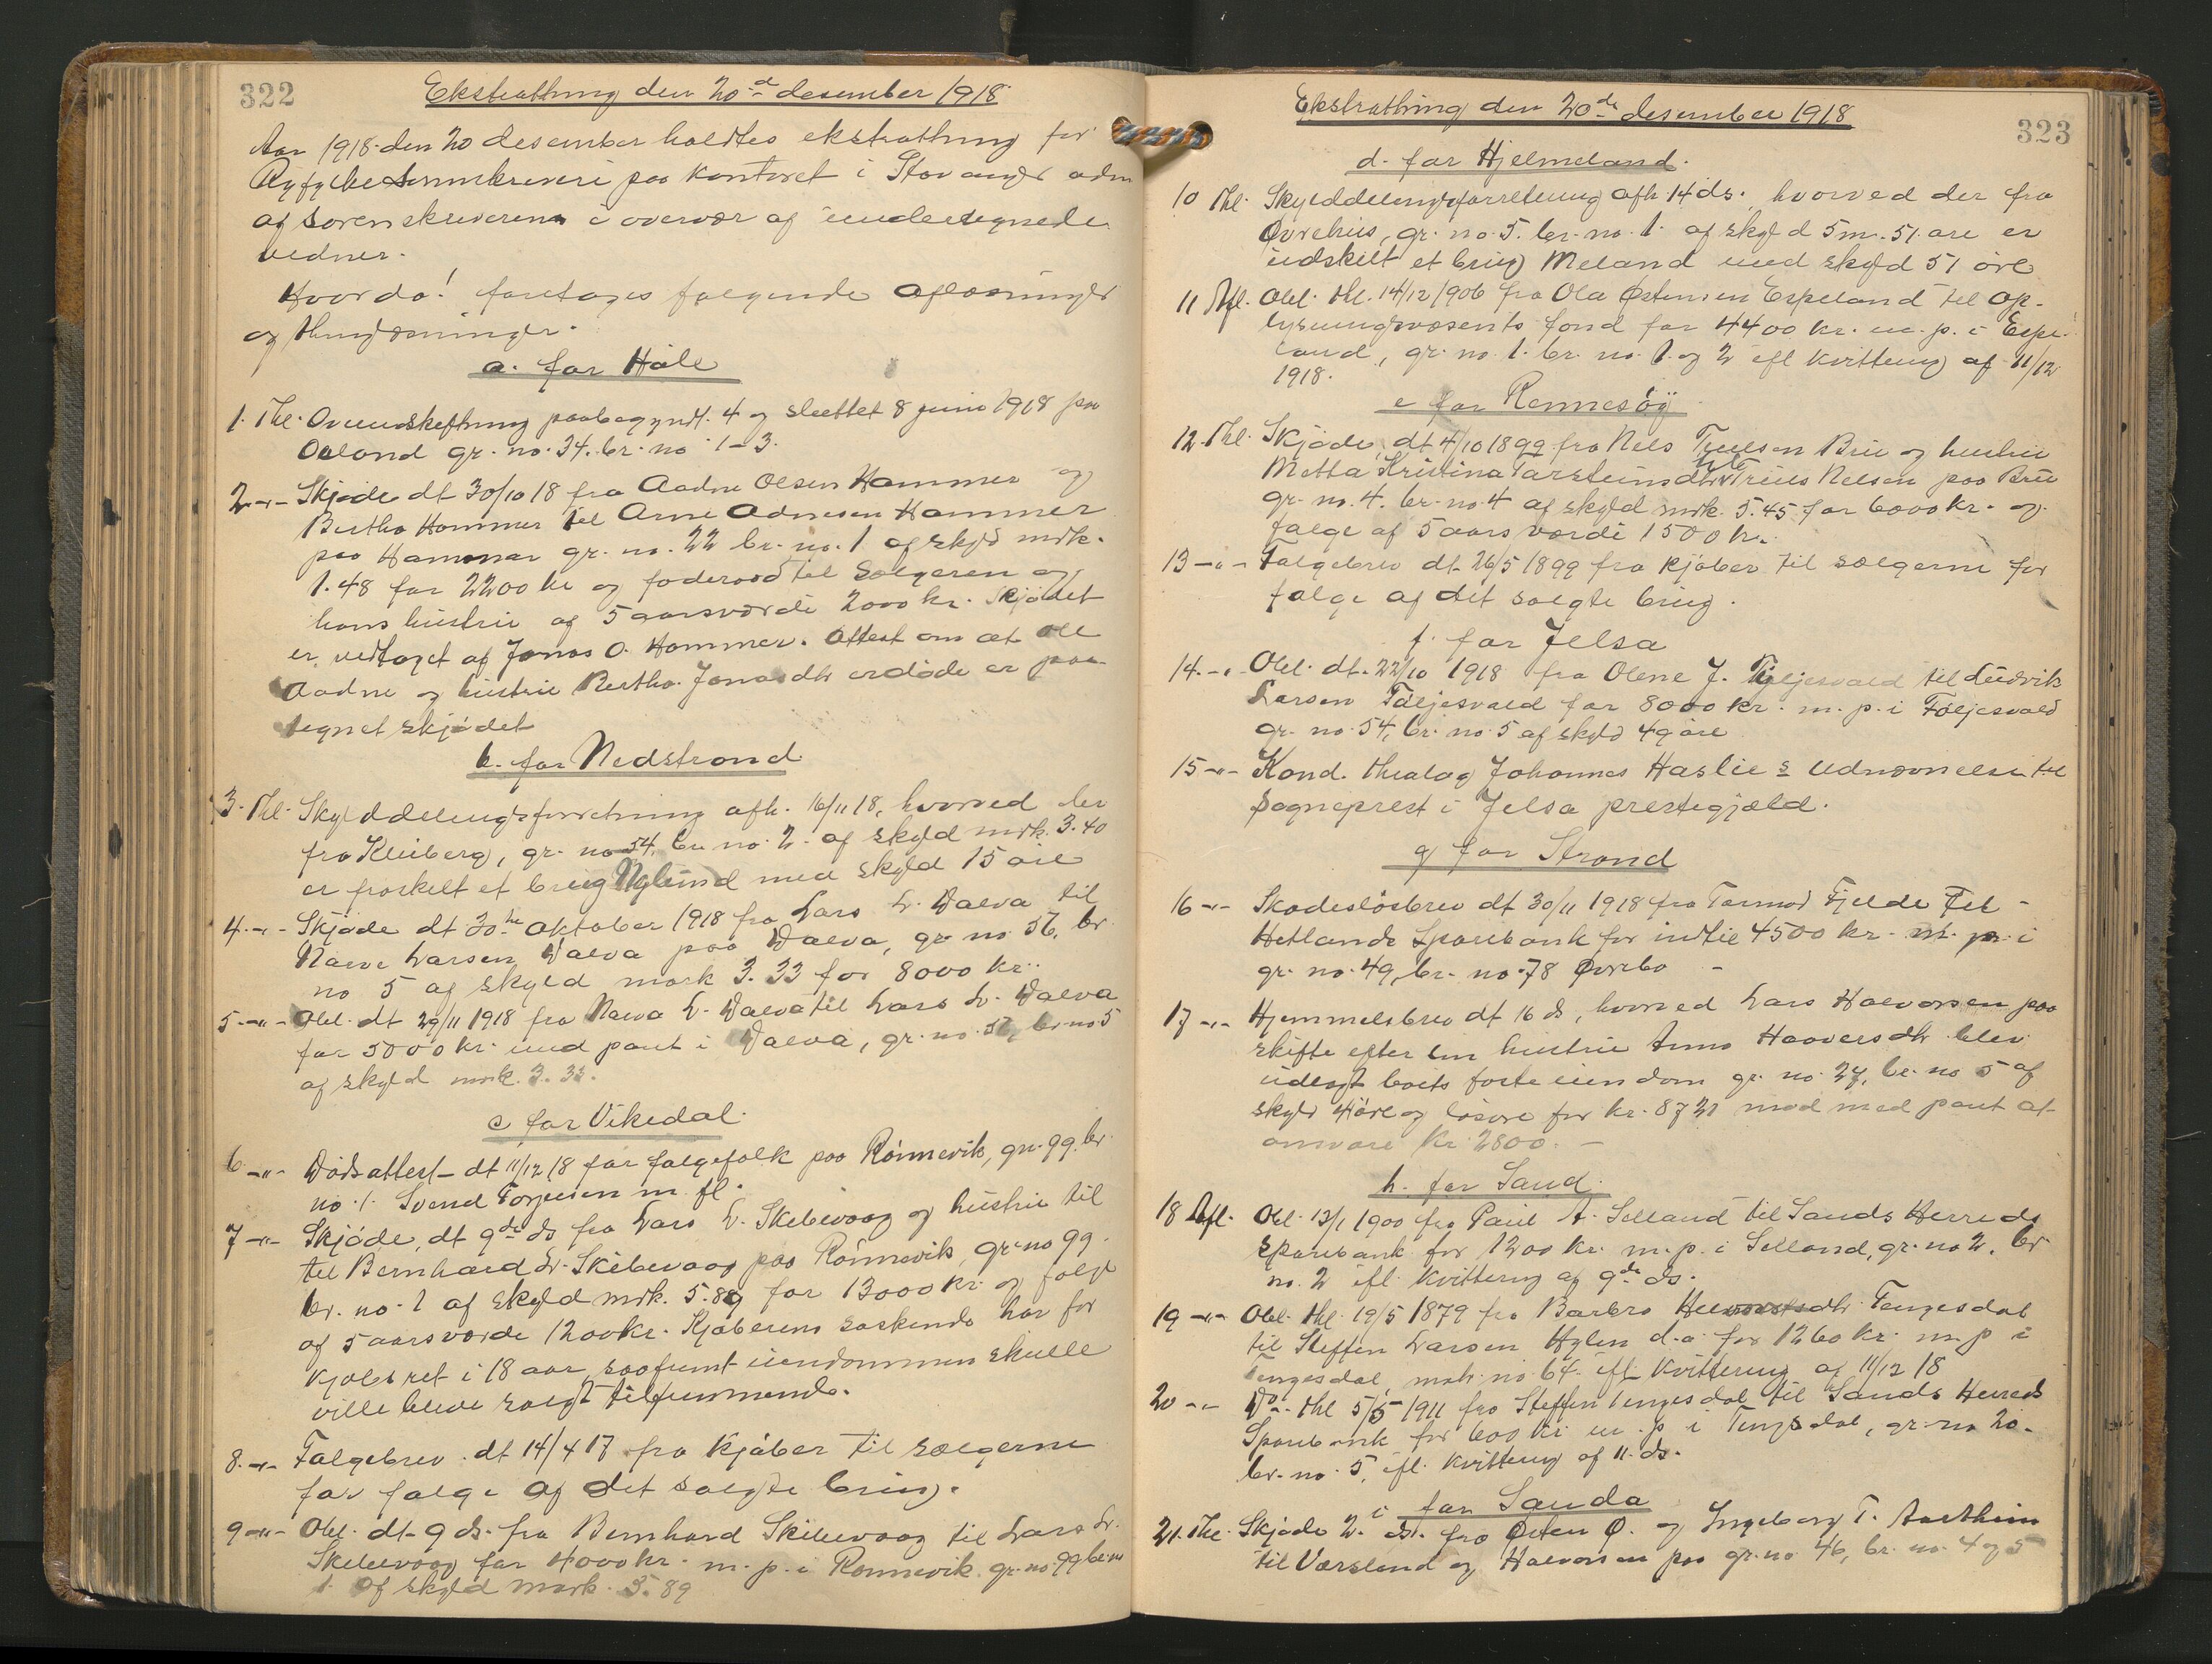 322
Ekstrathing den 20de desember 1918
Aar 1918 den 20 desember holdtes ekstrathing for
Ryfylke Sorenskriveri paa kontoret i Stavanger adm
af sorenskriveren i overvær af undertegnede
vidner.
Hvorda! foretages følgende aflæsninger
og thinglæsninger.
a. for Håle
1. Thl. Overudskiftning paabegyndt 4 og sluttet 8 juni 1918 paa
gr. no. 34. br. no 1-3.
2 -"- Skjøde dt 30/10 18 fra Aadne Olsen Hammer og
Bertha Hammer til Arne Adnesen Hammer
paa Hammer gr. no. 22 br. no. 1 af skyld mrk.
1.48 for 2200 kr og foderaad til Sælgeren og
hans hustru af 5 aarsværdi 2000 kr. Skjødet
er vedtaget af Jonas O. Hammer. Attest om at
Aadne og hustru Bertha Jonasdtr er døde er paa
tegnet skjødet
b. for Nedstrand
3. Thl. Skylddelingsforretning afh. 16/11 18, hvorved der
fra Kleiberg, gr. no 54, br. no. 2 af skyld mrk. 3.40
er fraskilt et brug Nylund med skyld 15 øre
4. -"- Skjøde dt 30te oktober 1918 fra Lars L. Dalva til
Larsen Dalva paa Dalva, gr. no. 56, br.
no 5 af skyld mark 3.33 for 8000 kr..
5 -"- Obl. dt 29/11 1918 fra L. Dalva til Lars L. Dalva
for 5000 kr. med pant i Dalva, gr. no. 56, br. no 5
af skyld mrk. 3.33.
c for Vikedal.
6 -"- Dødsattest dt 11/12 18 for følgefolk paa Rønnevik, gr. 99. br.
no. 1. Svend Torjusen m. fl.
7 -"- Skjøde, dt 9de ds fra Lars L. Skibevaag og hustru til
til Bernhard L. Skibevaag paa Rønnevik, gr. no 99.
br. no. 1 af skyld mrk. 5.89 for 13000 kr. og følge
af 5 aarsværde 1200 kr. Kjøberens søskende har for
kjøbsret i 18 aar, saafremt eiendommen skulle
ville blive solgt tilfremmende.
8. -"- Følgebrev dt 14/4 17 fra kjøber til sælgerne
for følge af det solgte brug.
9 -"- Obl. dt 9 ds. fra Bernhard Skibevaag til Lars L.
Skibevaag for 4000 kr. m. p. i Rønnevik gr. no 99 br. no
1 af skyld mark. 5.89
Ekstrathing den 20de desember 1918
323
d. for Hjelmeland.
10 Thl. Skylddelingsforretning afh. 14 ds. hvorved der fra
Øvrehus, gr. no. 5. br. no. 1 af skyld 5 m. 51 øre er
udskilt et brug Meland med skyld 51 øre
11 Afl. Obl. thl. 14/12 1906 fra Ola Østensen Espeland til op-
lysningsvæsents fond for 4400 kr. m. p. i Espe-
land, gr. no. 1. br. no. 1 og 2 ifl kvittering af 11/12
1918.
e for Rennesöy
12 Thl. Skjøde, dt 4/10 1899 fra Nels Truls​en Bru og hustru
Metta Kristina Tarsteinsdtr til Truls Nelsen paa Bru
gr. no. 4. br. no. 4 af skyld mrk. 5.45 for 6000 kr. og
følge af 5 aars værdi 1500 kr.
13 -"- Følgebrev dt 26/5 1899 fra kjøber til sælgerne for
følge af det solgte brug.
f. for Jelsa
14. -"- Obl. dt. 22/10 1918 fra Olene J. Føljesvald til Ludvik
Larsen Føljesvald for 8000 kr. m. p. i Føljesvald
gr. no. 54, br. no. 5 af skyld 49 øre
15 -"- Kand. theolog Johannes Haslie s udnævnelse til
Sogneprest i Jelsa prestegjæld.
g for Strand
16 -"- Skadesløsbrev dt 30/11 1918 fra Tormod Fjelde til
Hetlands Sparebank for indtil 4500 kr. m. p. i
gr. no. 49, br. no. 78 Øvrebø -
17 -"- Hjemmelsbrev dt 16 ds, hvorved Lars Halvorsen paa
skifte efter hustru Anna Haaversdtr blev
udlagt boets faste eiendom gr. no. 27, br. no 5 af
skyld øre og løsøre for kr. 8721 mod med pant at
ansvare kr. 2800. -
h. for Sand.
18 Afl. Obl. 13/1 1900 fra Paul A. Selland til Sands Herreds
sparebank for 1200 kr. m. p. i Selland, gr. no 2, br
no. 2 ifl. kvittering af 9de ds.
19 -"- Obl. thl. 19/5 1879 fra Barbro Tengesdal
til Steffen Larsen Hylen d.a. for 1260 kr. m. p i
Tengesdal, matr. no. 64. ifl. kvittering af 11/12 18
20 -"- Do - thl 5/5 1911 fra Steffen Tengesdal til Sands Herreds
Sparebank for 600 kr. m. p i Tengsdal, gr. no 20.
br. no. 5, ifl. kvittering af 11. ds.
i for Sauda
21. Thl. Skjøde 2. ds. fra Østen Ø. og Ingeborg T. Aartheim
til Værsland og Halvorsen paa gr. no 46, br. no. 4 og 5